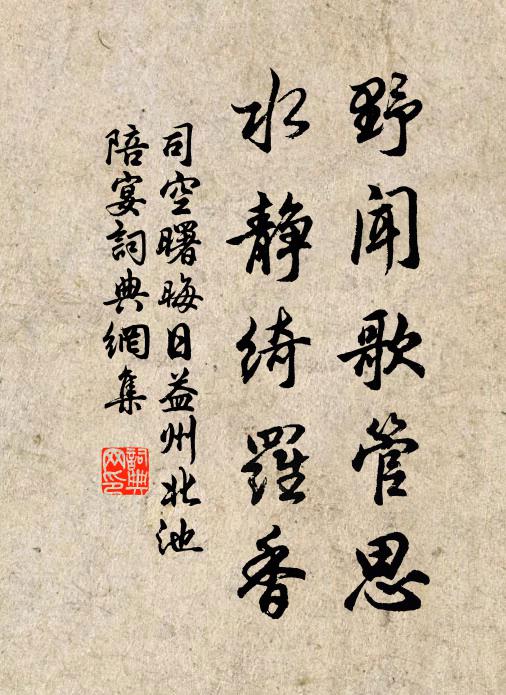 野聞歌管思
水静綺羅香
司空曙晦日益州北池
陪宴詞典網集
詞典
网印